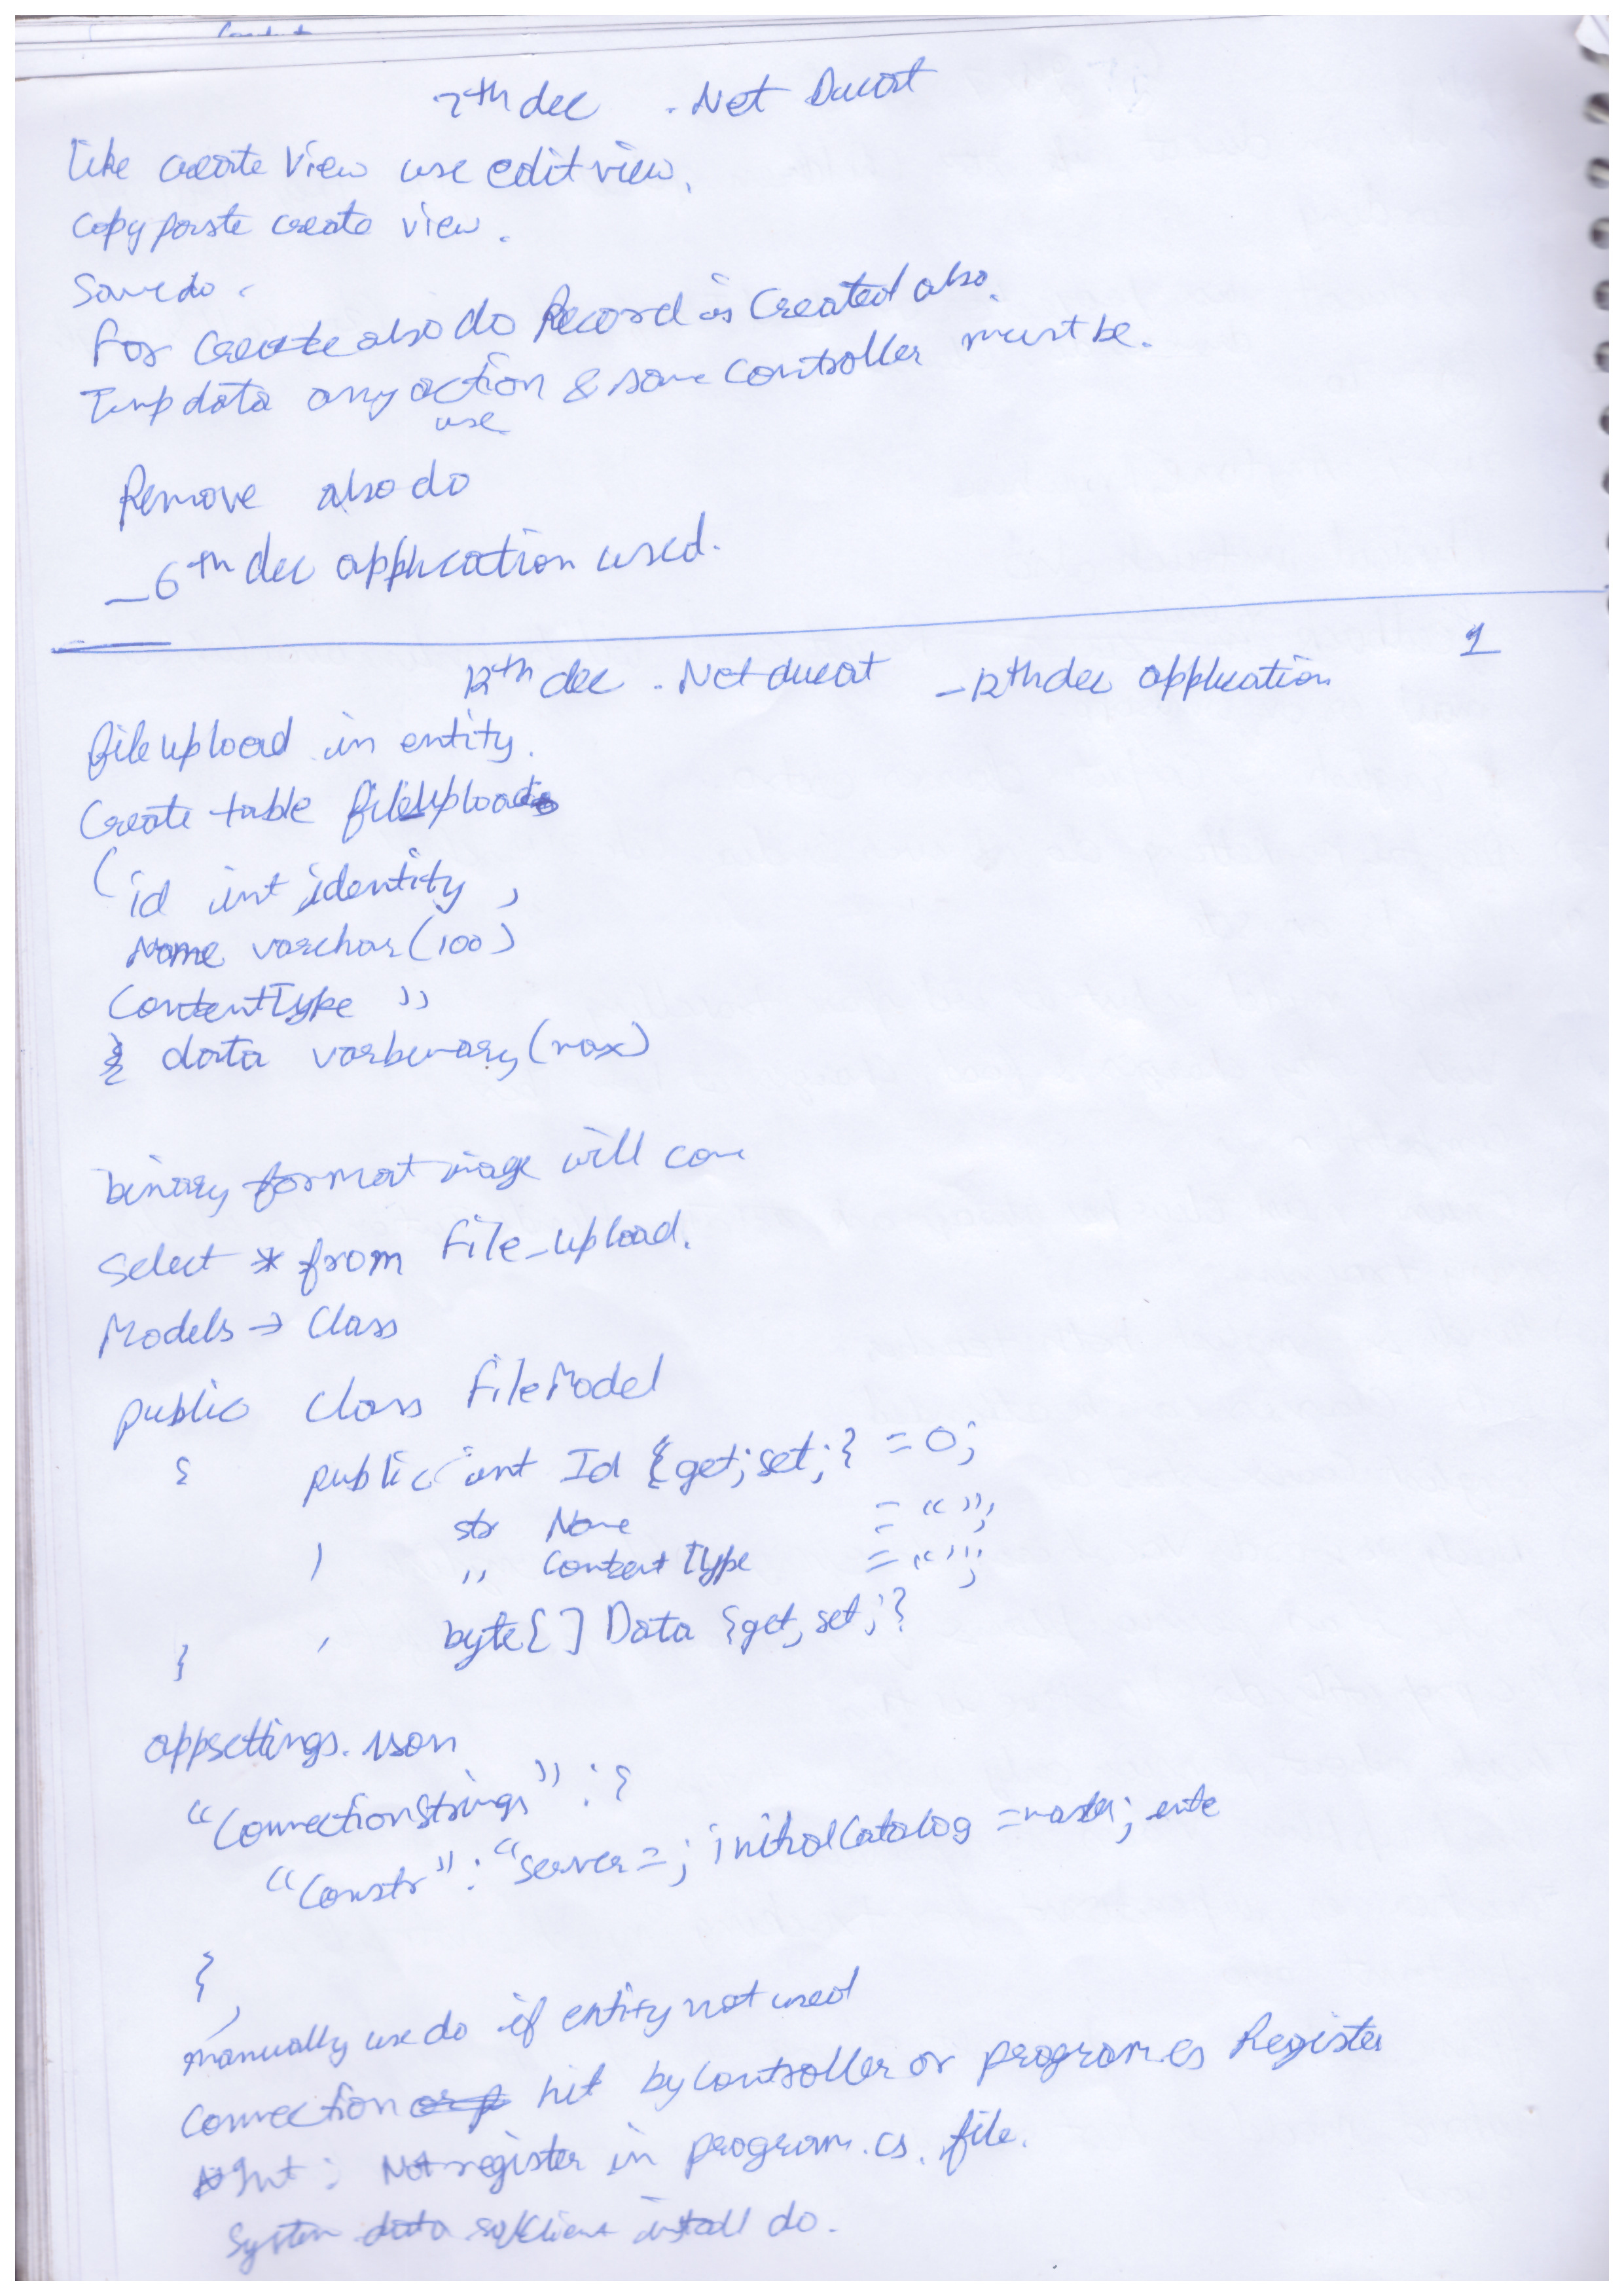 7th dec .Net Ducat
like create View use edit view.
Copy paste create view.
Save do.
For Create also do Record is Created also.
Tempdata any action & same controller must be.
use
Remove also do
_6th dec application used.
1
12th dec .Net ducat _12th dec application
file upload in entity.
Create table fileuploads
( id int identity ,
Name varchar(100)
ContentType ''
} data varbinary(max)
binary format image will come
select * from file_upload.
Models → Class
public class FileModel
{ public int Id {get; set;} = 0;
str Name = "";
'' Content Type = "";
byte[] Data {get, set;}
}
appsettings.json
"ConnectionStrings" : {
"Constr" : "server=; initialCatalog = master; ente
}
,
manually use do if entity not used
Connection hit by Controller or program.cs Register
Int : Not register in program.cs. file.
System data sqlclient install do.